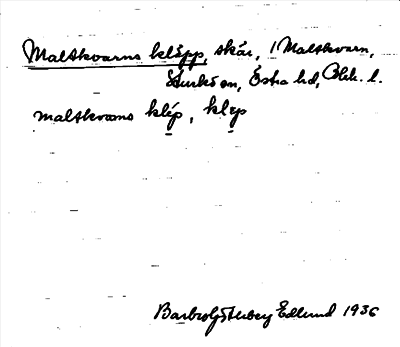 Maltkvarns kläpp, skär, i Maltkvarn,
Sturkö sn, Östra hd, Blek. l.
maltkvarns klép, klep
Barbro Götberg Edlund 1936